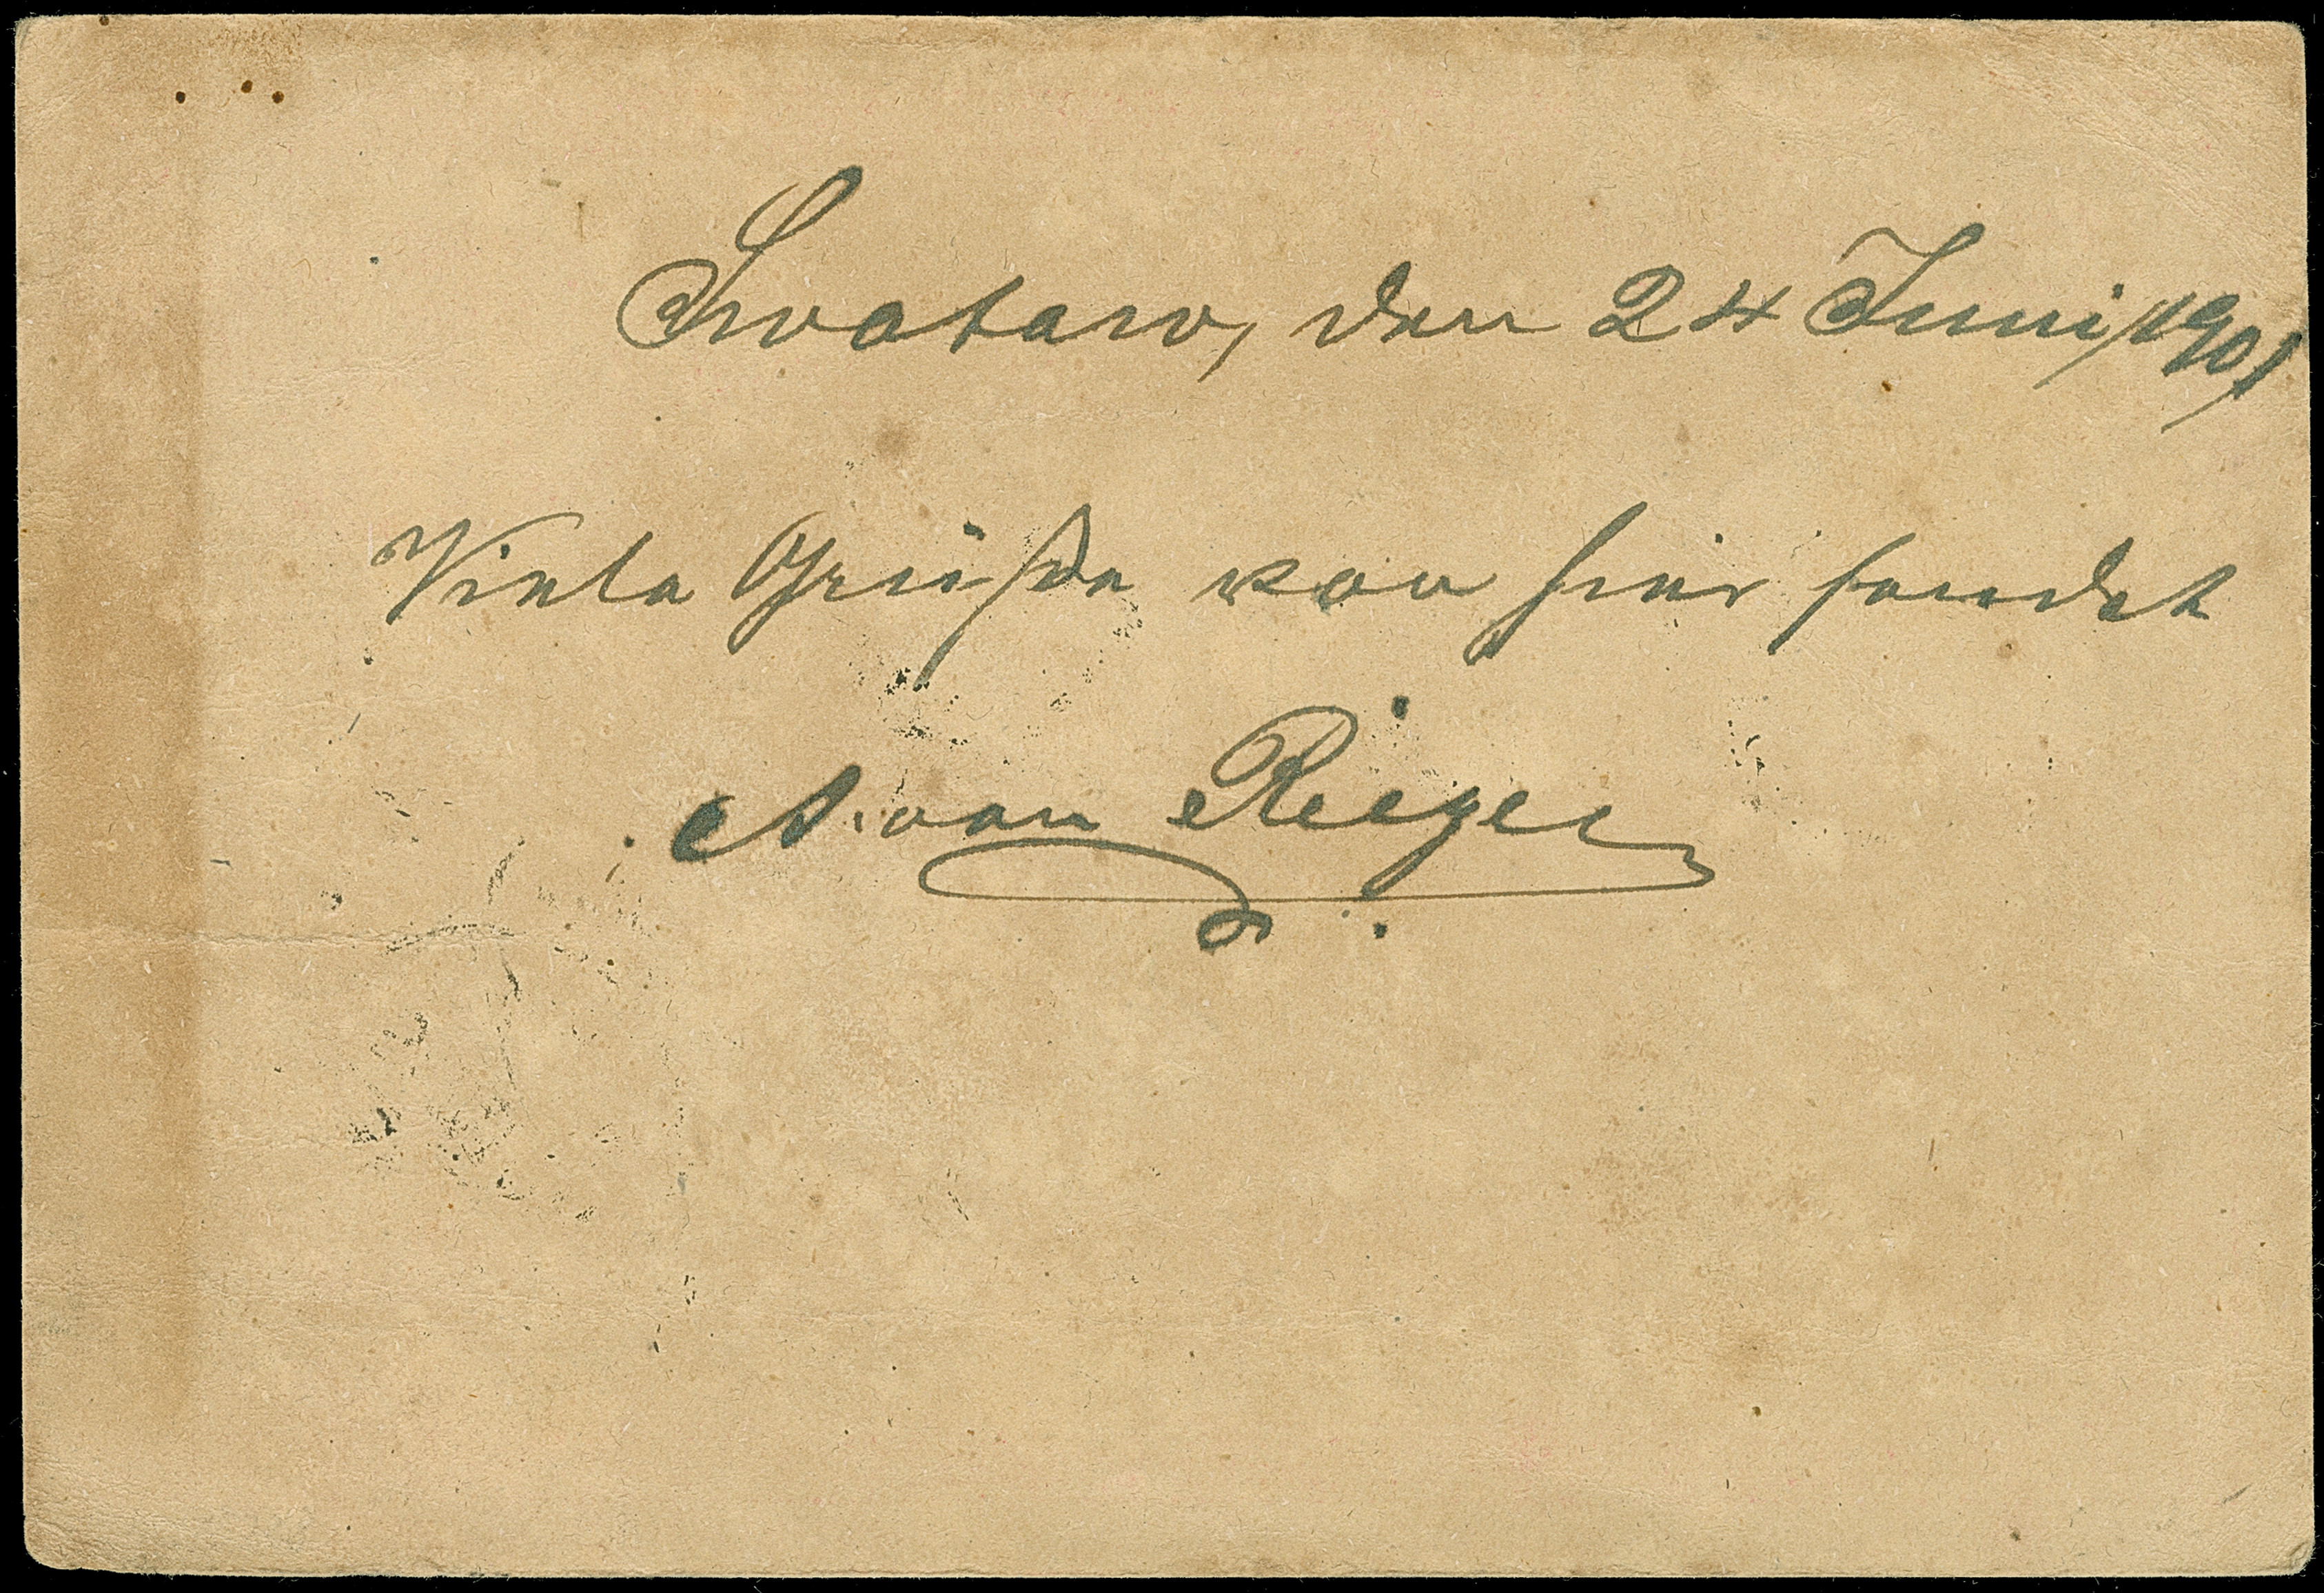 Swatow, den 24 Juni 1901
Viele Grüße von hier sendet
A. van Rieger